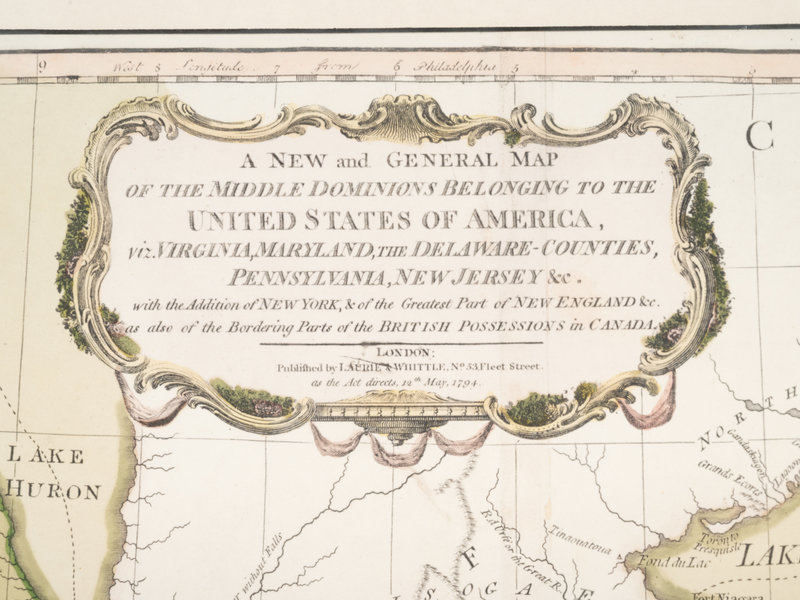 9 West 8 Longitude 7 from 6 Philadelphia 5
C
A NEW and GENERAL MAP
OF THE MIDDLE DOMINIONS BELONGING TO THE
UNITED STATES OF AMERICA,
viz. VIRGINIA, MARYLAND, THE DELAWARE-COUNTIES,
PENNSYLVANIA, NEW JERSEY &c.
with the Addition of NEW YORK, & of the Greatest Part of NEW ENGLAND &c.
as also of the Bordering Parts of the BRITISH POSSESSIONS in CANADA.
LONDON;
Published by LAURIE & WHITTLE, No. 53, Fleet Street.
as the Act directs, 12th May, 1794.
LAKE
HURON
NORTH
Gandaskiagon
Grands Ecoris
Toronto
Fond du Lac
LAK
Fort Niagara
Tinaouatoua
R. d'Urfé or the Great R.
or without Falls
F
S O G A E